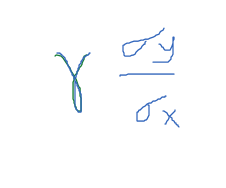 γ σy/σx